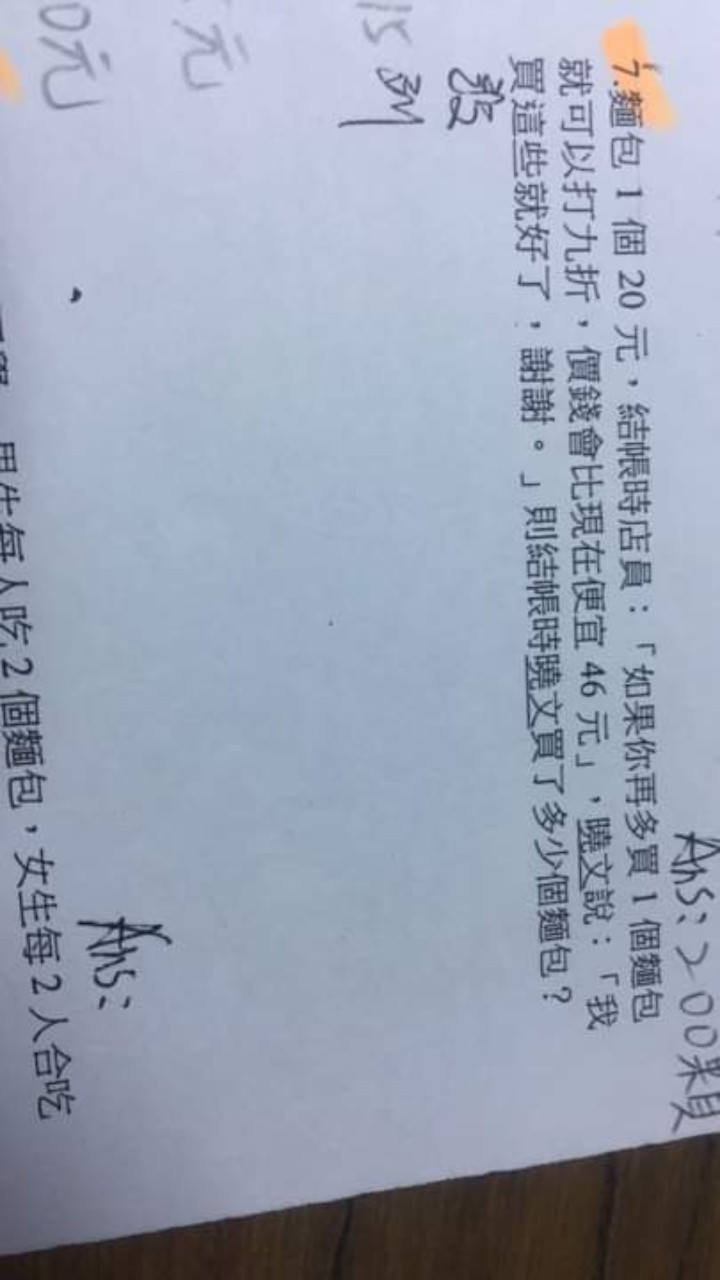 Ans:200公尺
7.麵包 1 個 20 元,結帳時店員:「如果你再多買 1 個麵包
就可以打九折,價錢會比現在便宜 46 元」,曉文說:「我
買這些就好了,謝謝。」則結帳時曉文買了多少個麵包?
15
元
Ans:
0元
男生每人吃 2 個麵包,女生每 2 人合吃